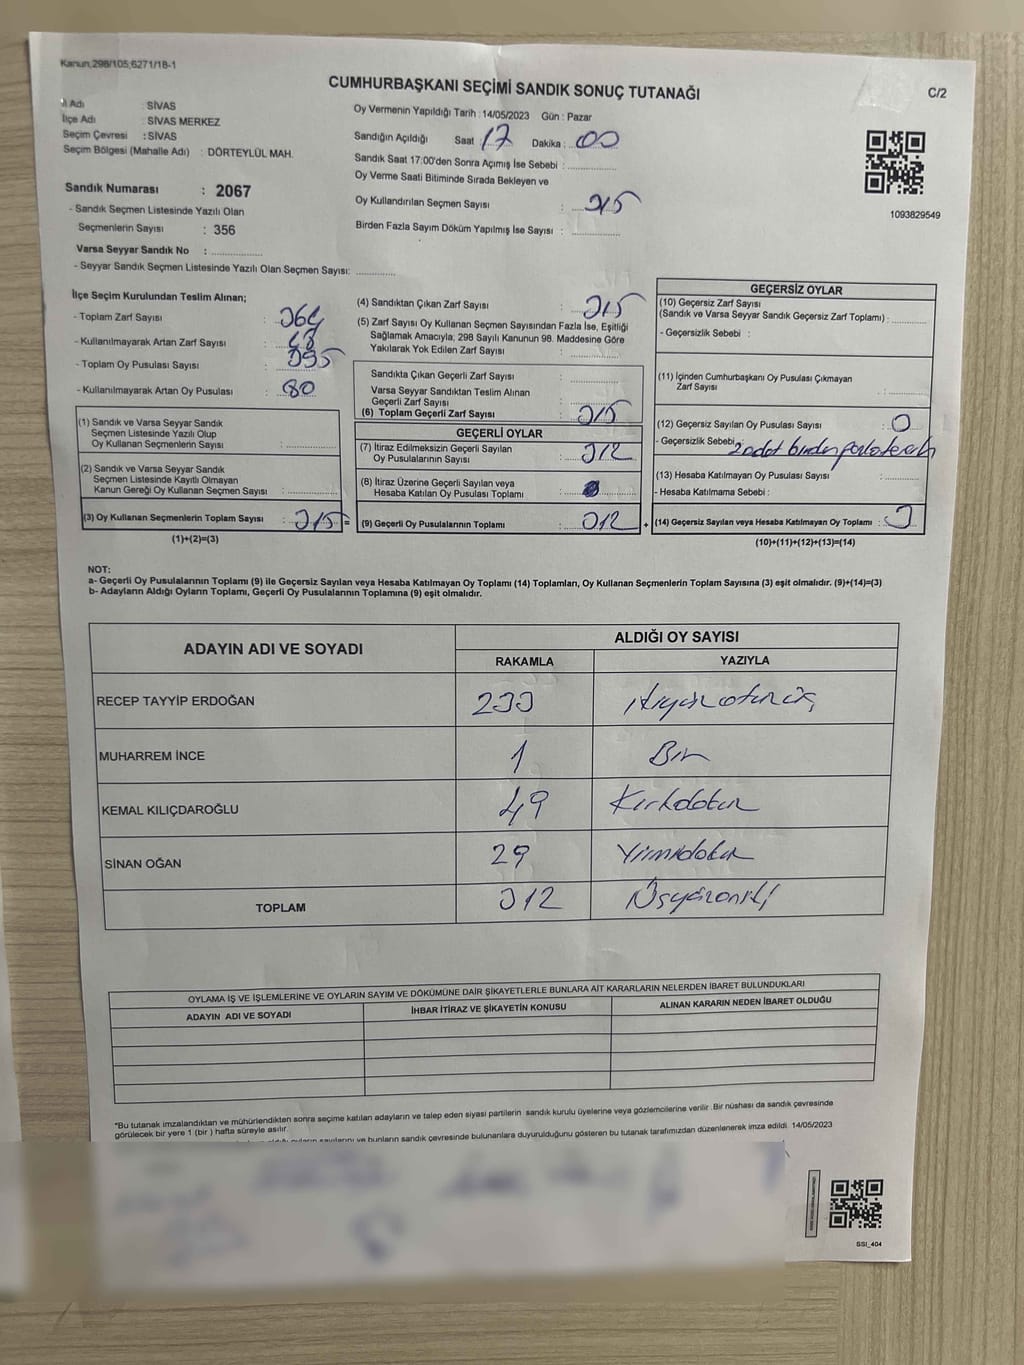 Kanun,298/105;6271/18-1
CUMHURBAŞKANI SEÇİMİ SANDIK SONUÇ TUTANAĞI
C/2
İl Adı : SİVAS
İlçe Adı : SİVAS MERKEZ
Seçim Çevresi : SİVAS
Seçim Bölgesi (Mahalle Adı) : DÖRTEYLÜL MAH.
Sandık Numarası : 2067
- Sandık Seçmen Listesinde Yazılı Olan
Seçmenlerin Sayısı : 356
Varsa Seyyar Sandık No :
- Seyyar Sandık Seçmen Listesinde Yazılı Olan Seçmen Sayısı:
Oy Vermenin Yapıldığı Tarih : 14/05/2023 Gün : Pazar
Sandığın Açıldığı Saat : 17 Dakika : 00
Sandık Saat 17:00'den Sonra Açımış İse Sebebi :
Oy Verme Saati Bitiminde Sırada Bekleyen ve
Oy Kullandırılan Seçmen Sayısı : 315
Birden Fazla Sayım Döküm Yapılmış İse Sayısı :
1093829549
İlçe Seçim Kurulundan Teslim Alınan;
- Toplam Zarf Sayısı :
- Kullanılmayarak Artan Zarf Sayısı :
- Toplam Oy Pusulası Sayısı : 395
- Kullanılmayarak Artan Oy Pusulası : 80
(1) Sandık ve Varsa Seyyar Sandık
Seçmen Listesinde Yazılı Olup
Oy Kullanan Seçmenlerin Sayısı :
(2) Sandık ve Varsa Seyyar Sandık
Seçmen Listesinde Kayıtlı Olmayan
Kanun Gereği Oy Kullanan Seçmen Sayısı :
(3) Oy Kullanan Seçmenlerin Toplam Sayısı : 315 =
(1)+(2)=(3)
(4) Sandıktan Çıkan Zarf Sayısı : 315
(5) Zarf Sayısı Oy Kullanan Seçmen Sayısından Fazla İse, Eşitliği
Sağlamak Amacıyla, 298 Sayılı Kanunun 98. Maddesine Göre
Yakılarak Yok Edilen Zarf Sayısı :
Sandıkta Çıkan Geçerli Zarf Sayısı :
Varsa Seyyar Sandıktan Teslim Alınan
Geçerli Zarf Sayısı :
(6) Toplam Geçerli Zarf Sayısı : 315
GEÇERLİ OYLAR
(7) İtiraz Edilmeksizin Geçerli Sayılan
Oy Pusulalarının Sayısı : 312
(8) İtiraz Üzerine Geçerli Sayılan veya
Hesaba Katılan Oy Pusulası Toplamı :
(9) Geçerli Oy Pusulalarının Toplamı : 312 +
GEÇERSİZ OYLAR
(10) Geçersiz Zarf Sayısı
(Sandık ve Varsa Seyyar Sandık Geçersiz Zarf Toplamı) :
- Geçersizlik Sebebi :
(11) İçinden Cumhurbaşkanı Oy Pusulası Çıkmayan
Zarf Sayısı :
(12) Geçersiz Sayılan Oy Pusulası Sayısı : 3
- Geçersizlik Sebebi : 2 adet birden fazla tercih
(13) Hesaba Katılmayan Oy Pusulası Sayısı :
- Hesaba Katılmama Sebebi :
(14) Geçersiz Sayılan veya Hesaba Katılmayan Oy Toplamı : 3
(10)+(11)+(12)+(13)=(14)
NOT:
a- Geçerli Oy Pusulalarının Toplamı (9) ile Geçersiz Sayılan veya Hesaba Katılmayan Oy Toplamı (14) Toplamları, Oy Kullanan Seçmenlerin Toplam Sayısına (3) eşit olmalıdır. (9)+(14)=(3)
b- Adayların Aldığı Oyların Toplamı, Geçerli Oy Pusulalarının Toplamına (9) eşit olmalıdır.
ADAYIN ADI VE SOYADI ALDIĞI OY SAYISI
RAKAMLA YAZIYLA
RECEP TAYYİP ERDOĞAN 233 ikiyüzotuzüç
MUHARREM İNCE 1 Bir
KEMAL KILIÇDAROĞLU 49 Kırkdokuz
SİNAN OĞAN 29 Yirmidokuz
TOPLAM 312 Üçyüzoniki
OYLAMA İŞ VE İŞLEMLERİNE VE OYLARIN SAYIM VE DÖKÜMÜNE DAİR ŞİKAYETLERLE BUNLARA AİT KARARLARIN NELERDEN İBARET BULUNDUKLARI
ADAYIN ADI VE SOYADI İHBAR İTİRAZ VE ŞİKAYETİN KONUSU ALINAN KARARIN NEDEN İBARET OLDUĞU
*Bu tutanak imzalandıktan ve mühürlendikten sonra seçime katılan adayların ve talep eden siyasi partilerin sandık kurulu üyelerine veya gözlemcilerine verilir. Bir nüshası da sandık çevresinde
görülecek bir yere 1 (bir) hafta süreyle asılır.
oyların sayılarını ve bunların sandık çevresinde bulunanlara duyurulduğunu gösteren bu tutanak tarafımızdan düzenlenerek imza edildi. 14/05/2023
SSI_404